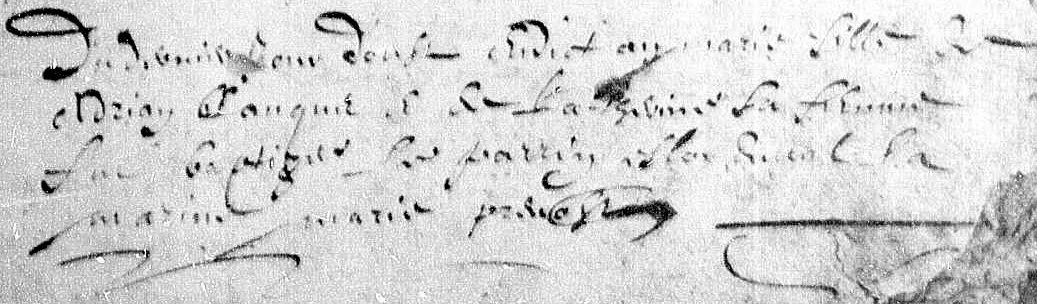 Du dernier Jour doust audict an marie fille de
Adrian Canquie et de Catherine sa femme
fut baptizee le parrin Duval la
marine marie prevost